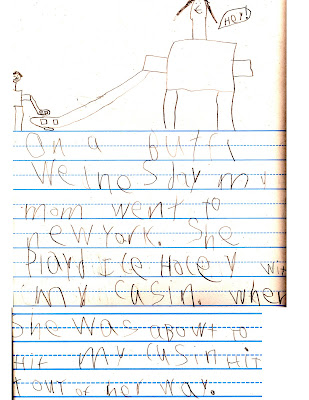 HEY!
On a buttfi
Wethe Sday my
mom went to
new York. She
Playd Ice Hocey wit
my casin. when
She was about to
Hit my cusin Hit
t out of her way.